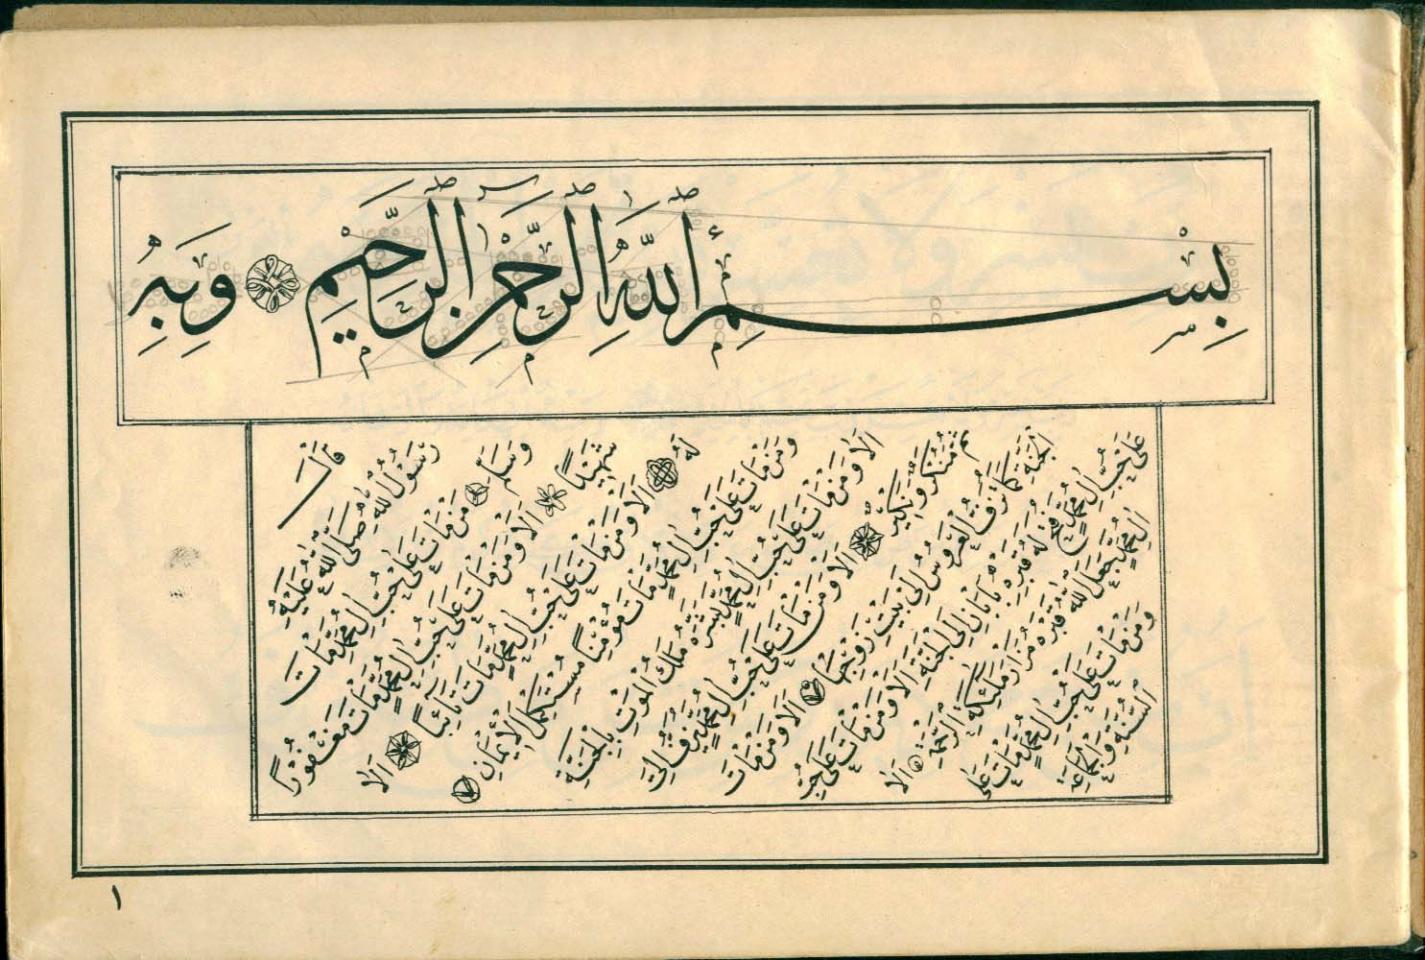 بِسْمِ اللّٰهِ الرَّحْمٰنِ الرَّحِيمِ وَبِهِ
قَالَ
رَسُولُ اللّٰهِ صَلَّى اللّٰهُ عَلَيْهِ
وَسَلَّمَ مَنْ مَاتَ عَلٰى حُبِّ اٰلِ مُحَمَّدٍ مَاتَ
شَهِيدًا اَلَا وَمَنْ مَاتَ عَلٰى حُبِّ اٰلِ مُحَمَّدٍ مَاتَ مَغْفُورًا
لَهُ اَلَا وَمَنْ مَاتَ عَلٰى حُبِّ اٰلِ مُحَمَّدٍ مَاتَ تَائِبًا اَلَا
وَمَنْ مَاتَ عَلٰى حُبِّ اٰلِ مُحَمَّدٍ مَاتَ مُؤْمِنًا مُسْتَكْمِلَ الْاِيمَانِ
اَلَا وَمَنْ مَاتَ عَلٰى حُبِّ اٰلِ مُحَمَّدٍ بَشَّرَهُ مَلَكُ الْمَوْتِ بِالْجَنَّةِ
ثُمَّ مُنْكَرٌ وَنَكِيرٌ اَلَا وَمَنْ مَاتَ عَلٰى حُبِّ اٰلِ مُحَمَّدٍ يُزَفُّ اِلَى
الْجَنَّةِ كَمَا تُزَفُّ الْعَرُوسُ اِلٰى بَيْتِ زَوْجِهَا اَلَا وَمَنْ مَاتَ
عَلٰى حُبِّ اٰلِ مُحَمَّدٍ فُتِحَ لَهُ قَبْرِهِ بَابَانِ اِلَى الْجَنَّةِ اَلَا وَمَنْ مَاتَ عَلٰى حُبِّ
اٰلِ مُحَمَّدٍ جَعَلَ اللّٰهُ قَبْرَهُ مَزَارَ مَلٰئِكَةِ الرَّحْمَةِ اَلَا
وَمَنْ مَاتَ عَلٰى حُبِّ اٰلِ مُحَمَّدٍ مَاتَ عَلَى
السُّنَّةِ وَالْجَمَاعَةِ
١